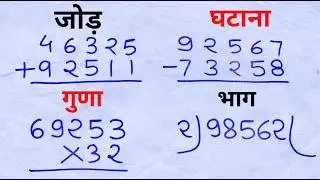 जोड़
46325
+92511
घटाना
92567
-73258
गुणा
69253
X32
भाग
2)98562(